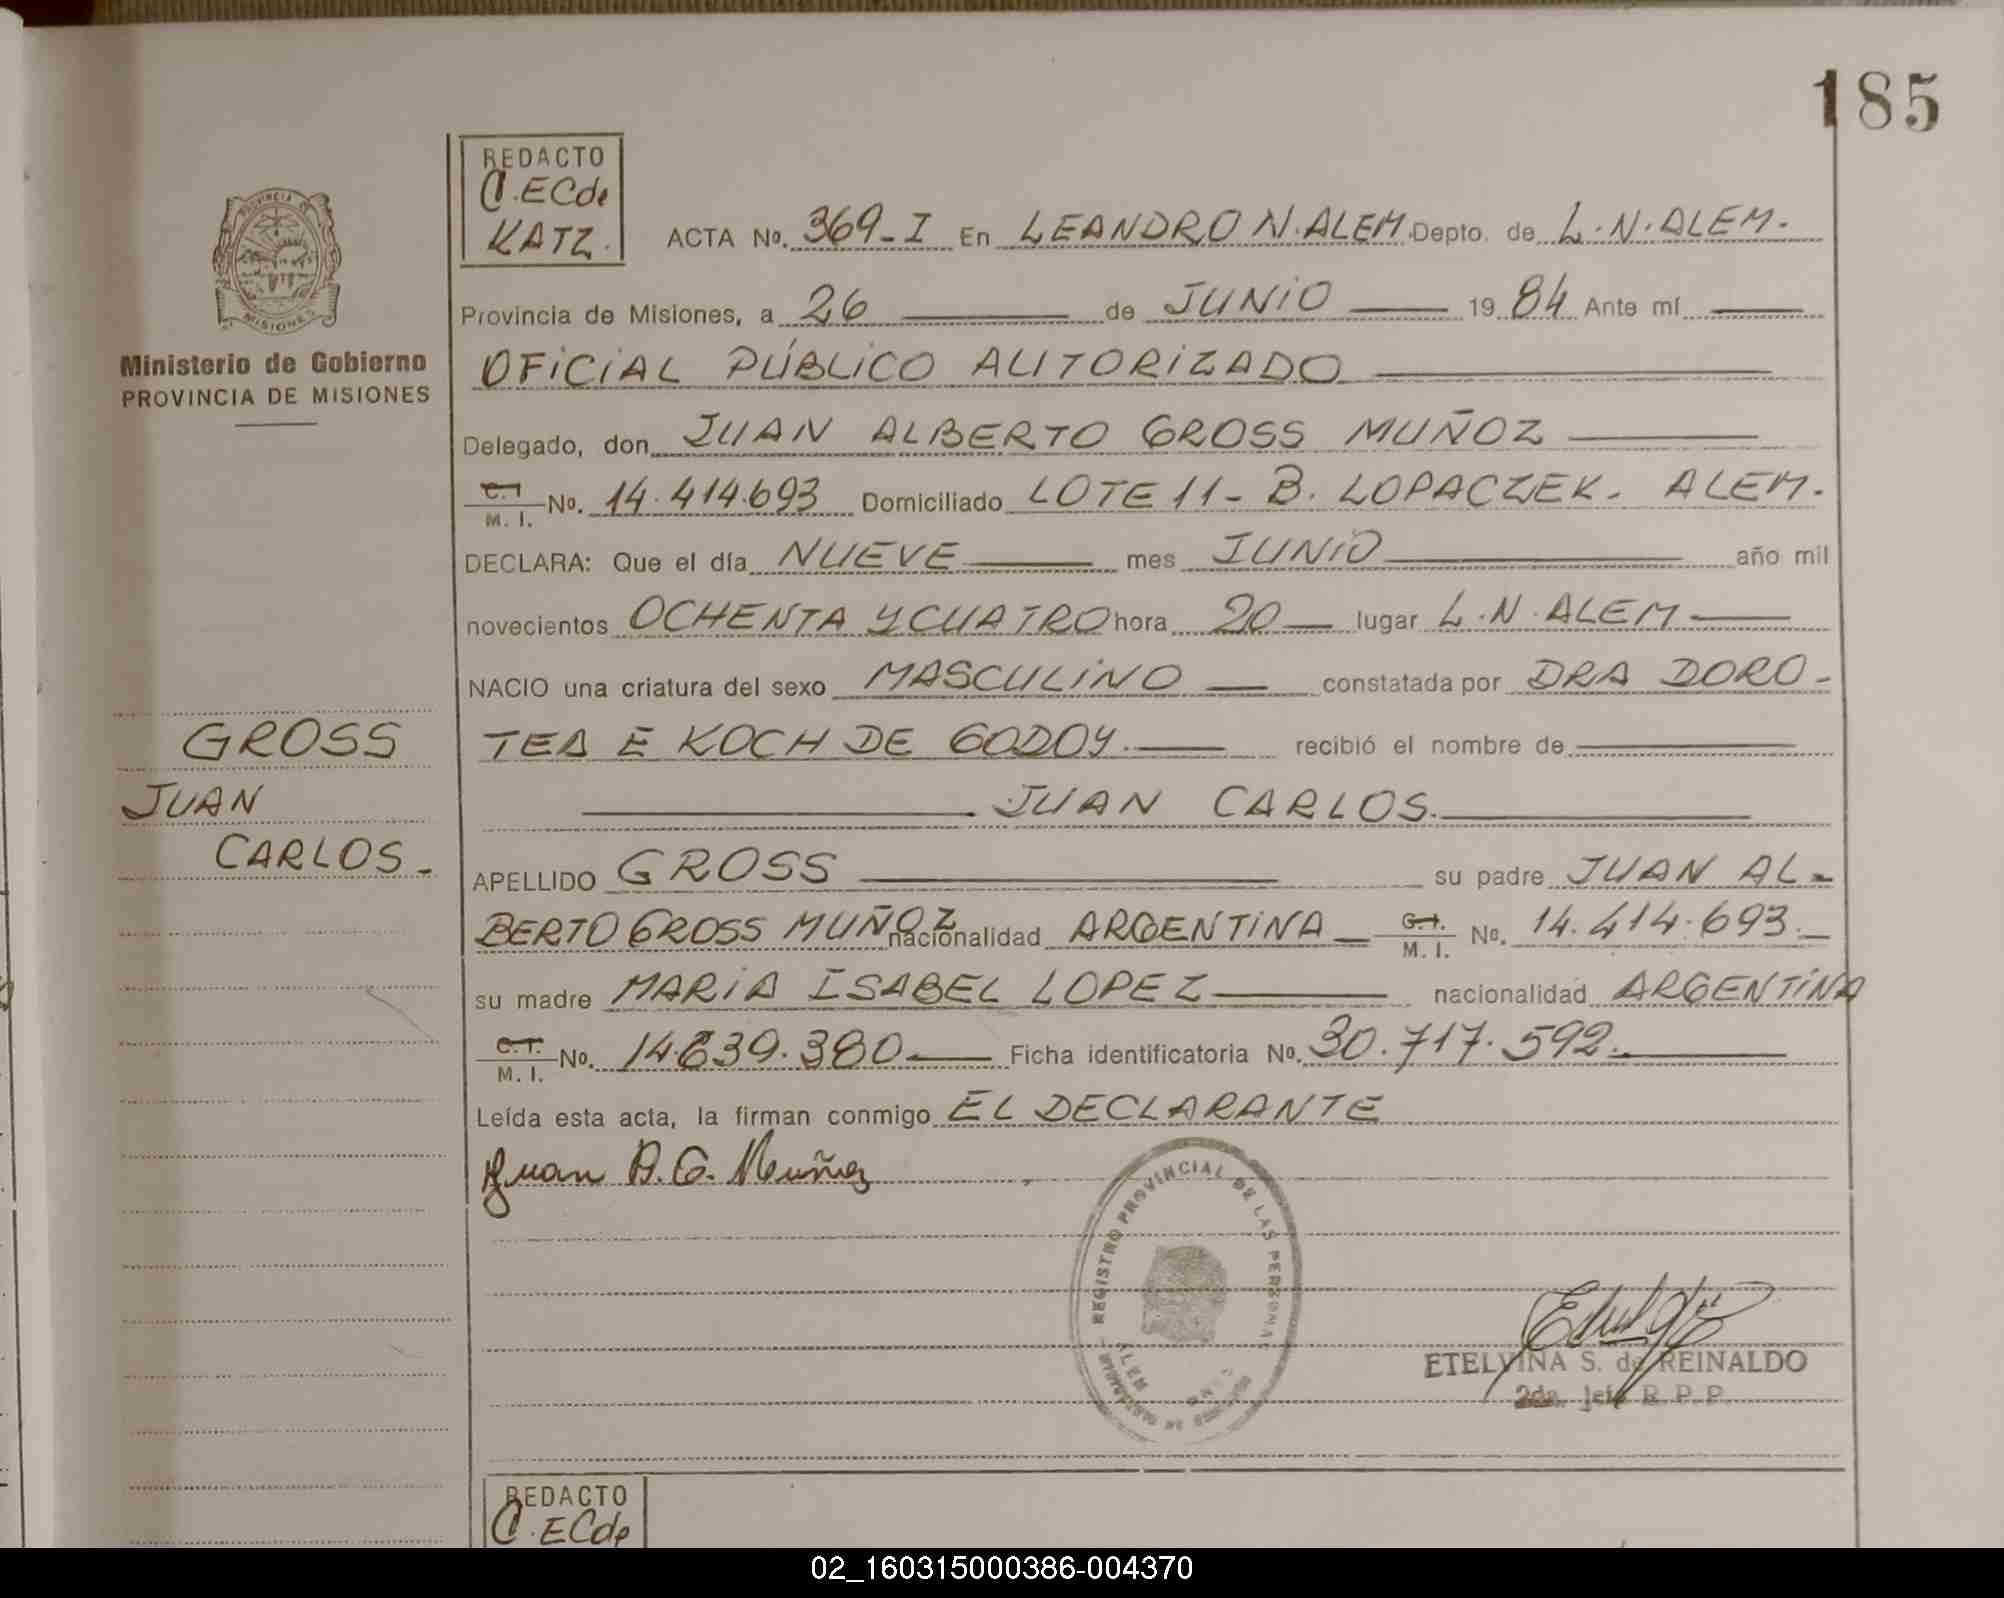 185
REDACTO
C.ECde
KATZ.
ACTA No. 369-I En LEANDRO N. ALEM. Depto. de L.N.ALEM.
PROVINCIA DE
MISIONES
Provincia de Misiones, a 26 de JUNIO 1984 Ante mí
Ministerio de Gobierno
PROVINCIA DE MISIONES
OFICIAL PÚBLICO AUTORIZADO
Delegado, don JUAN ALBERTO GROSS MUÑOZ
C.I. M. I. No. 14.414.693 Domiciliado LOTE 11- B. LOPACZEK. ALEM.
DECLARA: Que el día NUEVE mes JUNIO año mil
novecientos OCHENTA Y CUATRO hora 20 lugar L.N.ALEM
NACIO una criatura del sexo MASCULINO constatada por DRA DORO-
TEA E KOCH DE GODOY. recibió el nombre de
JUAN CARLOS.
GROSS
JUAN
CARLOS.
APELLIDO GROSS su padre JUAN AL-
BERTO GROSS MUÑOZ nacionalidad ARGENTINA C.I. M. I. No. 14.414.693.
su madre MARIA ISABEL LOPEZ nacionalidad ARGENTINA
C.I. M. I. No. 14.639.380 Ficha identificatoria No. 30.717.592.
Leída esta acta, la firman conmigo EL DECLARANTE
Juan A. G. Muñoz
REGISTRO PROVINCIAL DE LAS PERSONAS
ALEM
ETELVINA S. de REINALDO
2da. Jefe R.P.P.
REDACTO
C.ECde
02_160315000386-004370